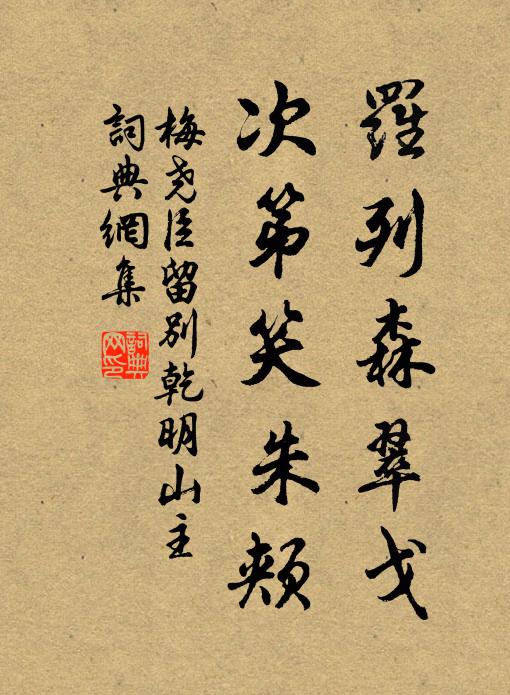 羅列森翠戈
次第笑朱頰
梅尧臣留別乾明山主
詞典網集
詞典网印